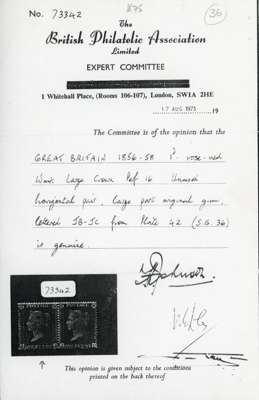 No. 73342
1875
36
The
British Philatelic Association
Limited
EXPERT COMMITTEE
1 Whitehall Place, (Rooms 106-107), London, SW1A 2HE
17 AUG 1973 19
The Committee is of the opinion that the
GREAT BRITAIN 1856-58 rose-red
Wmk. Large Crown Perf 16 Unused
horizontal pair, large part original gum,
lettered JB-JC from Plate 42 (S.G. 36)
is genuine.
73342
This opinion is given subject to the conditions
printed on the back thereof